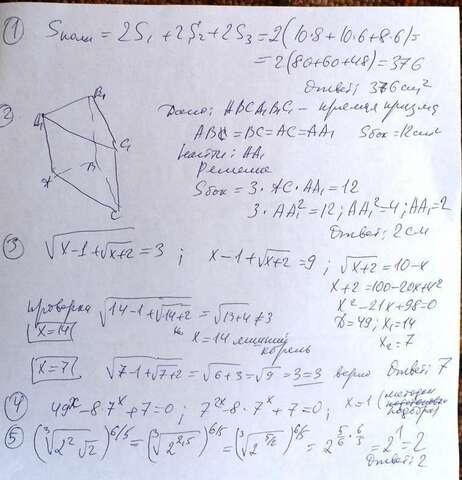 ① Sполн = 2S₁ + 2S₂ + 2S₃ = 2(10·8+10·6+8·6)=
= 2(80+60+48) = 376
Ответ: 376 см²
② Дано: ABCA₁B₁C₁ – прямая призма
AB = BC = AC = AA₁ Sбок = 12 см²
Найти: AA₁
Решение
Sбок = 3 · AC · AA₁ = 12
3 · AA₁² = 12; AA₁² = 4; AA₁ = 2
Ответ: 2 см
B₁
A₁
C₁
B
A
C
③ √(x-1+√(x+2)) = 3 ; x-1+√(x+2) = 9 ; √(x+2) = 10-x
x+2 = 100-20x+x²
x²-21x+98=0
D = 49; x₁ = 14
x₂ = 7
Проверка √(14-1+√(14+2)) = √(13+4) ≠ 3
x = 14 x = 14 лишний
корень
x = 7 √(7-1+√(7+2)) = √(6+3) = √9 = 3 = 3 верно Ответ: 7
④ 49ˣ - 8·7ˣ + 7 = 0 ; 7²ˣ - 8·7ˣ + 7 = 0 ; x = 1 (методом
подбора)
⑤ (∛(2²√2))^(6/5) = (∛(2^2,5))^(6/5) = (∛(2^(5/2)))^(6/5) = 2^(5/6 · 6/5) = 2¹ = 2
Ответ: 2